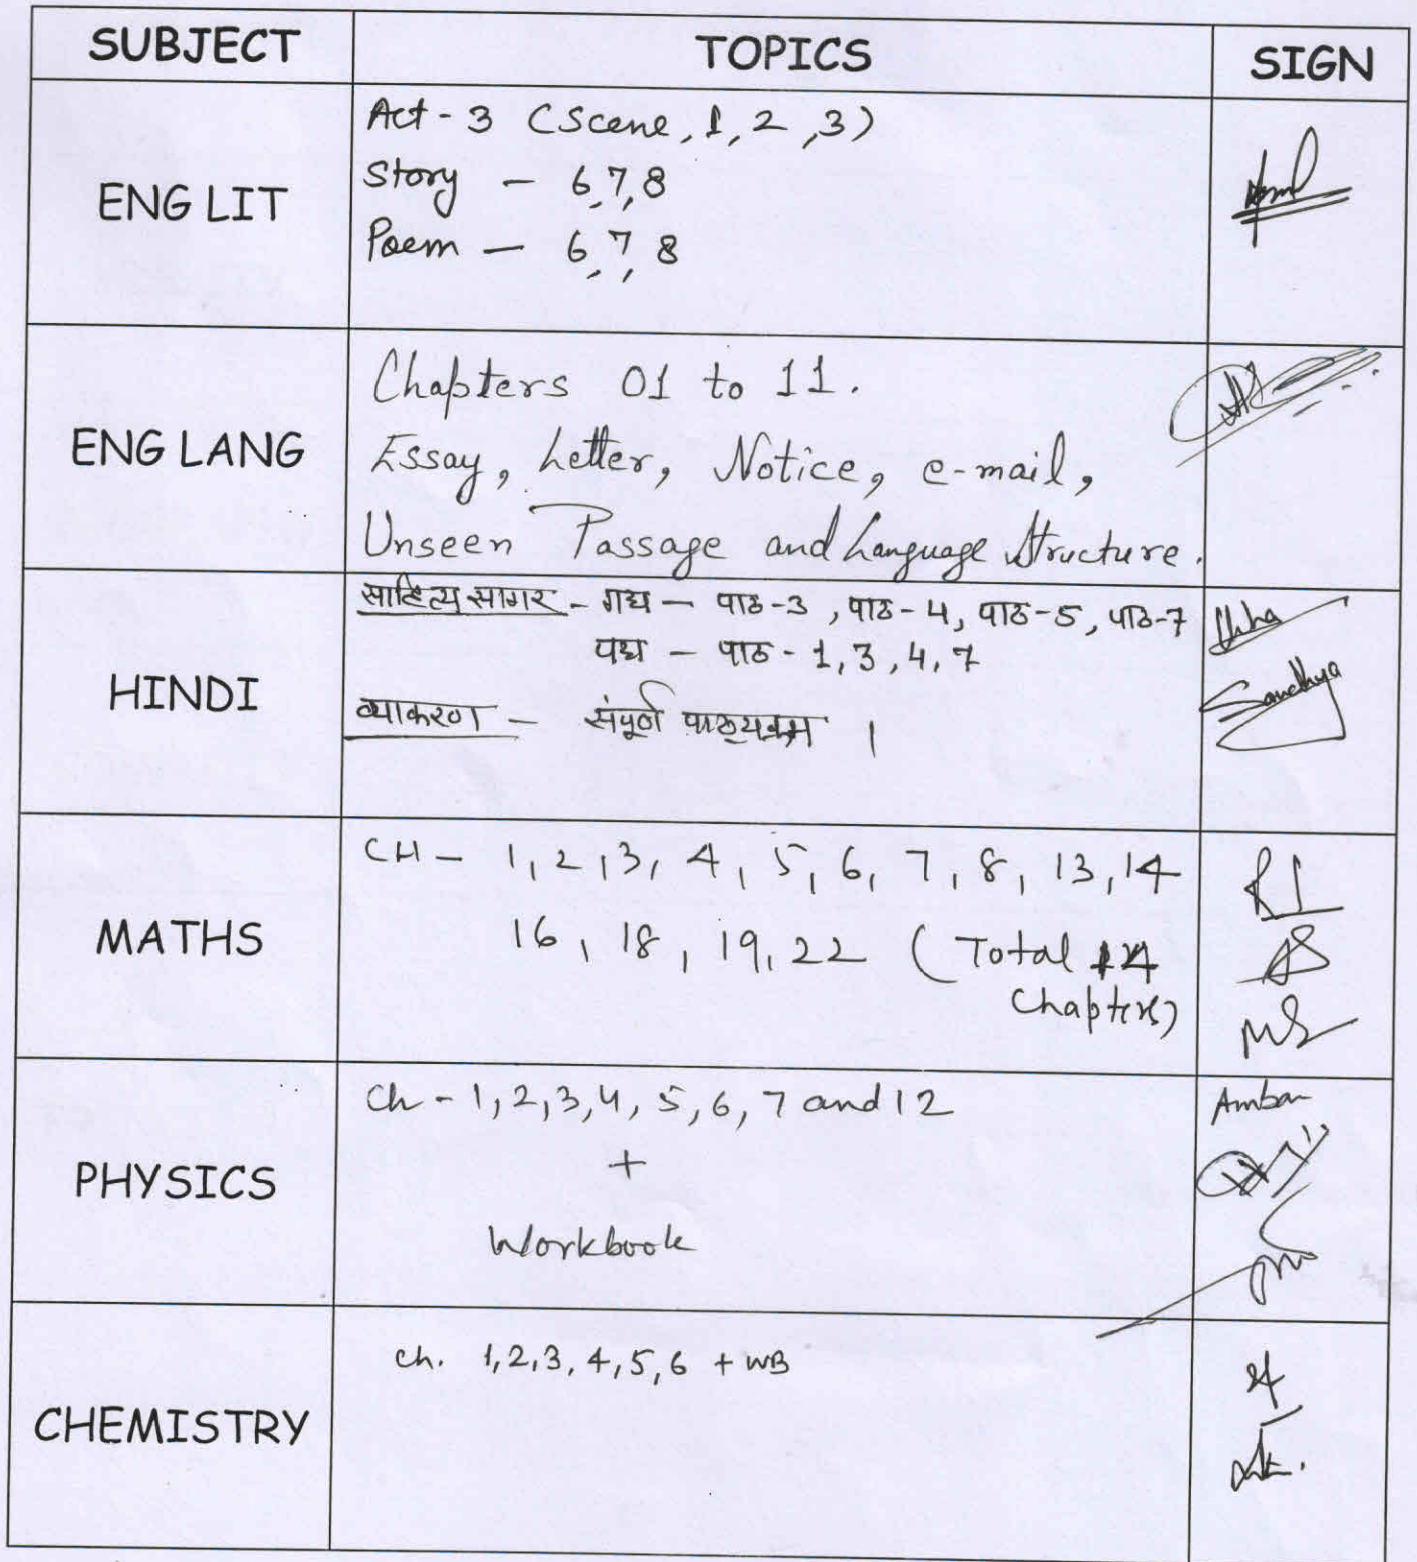 SUBJECT TOPICS SIGN
ENG LIT
Act - 3 (Scene, 1, 2, 3)
Story - 6, 7, 8
Poem - 6, 7, 8
ENG LANG
Chapters 01 to 11.
Essay, Letter, Notice, e-mail,
Unseen Passage and Language Structure.
HINDI
साहित्य सागर - गद्य - पाठ-3, पाठ-4, पाठ-5, पाठ-7
पद्य - पाठ - 1, 3, 4, 7
व्याकरण - संपूर्ण पाठ्यक्रम ।
Sandhya
MATHS
CH - 1, 2, 3, 4, 5, 6, 7, 8, 13, 14
16, 18, 19, 22 (Total 14
Chapters)
PHYSICS
Ch - 1, 2, 3, 4, 5, 6, 7 and 12
+
Workbook
CHEMISTRY
Ch. 1, 2, 3, 4, 5, 6 + WB